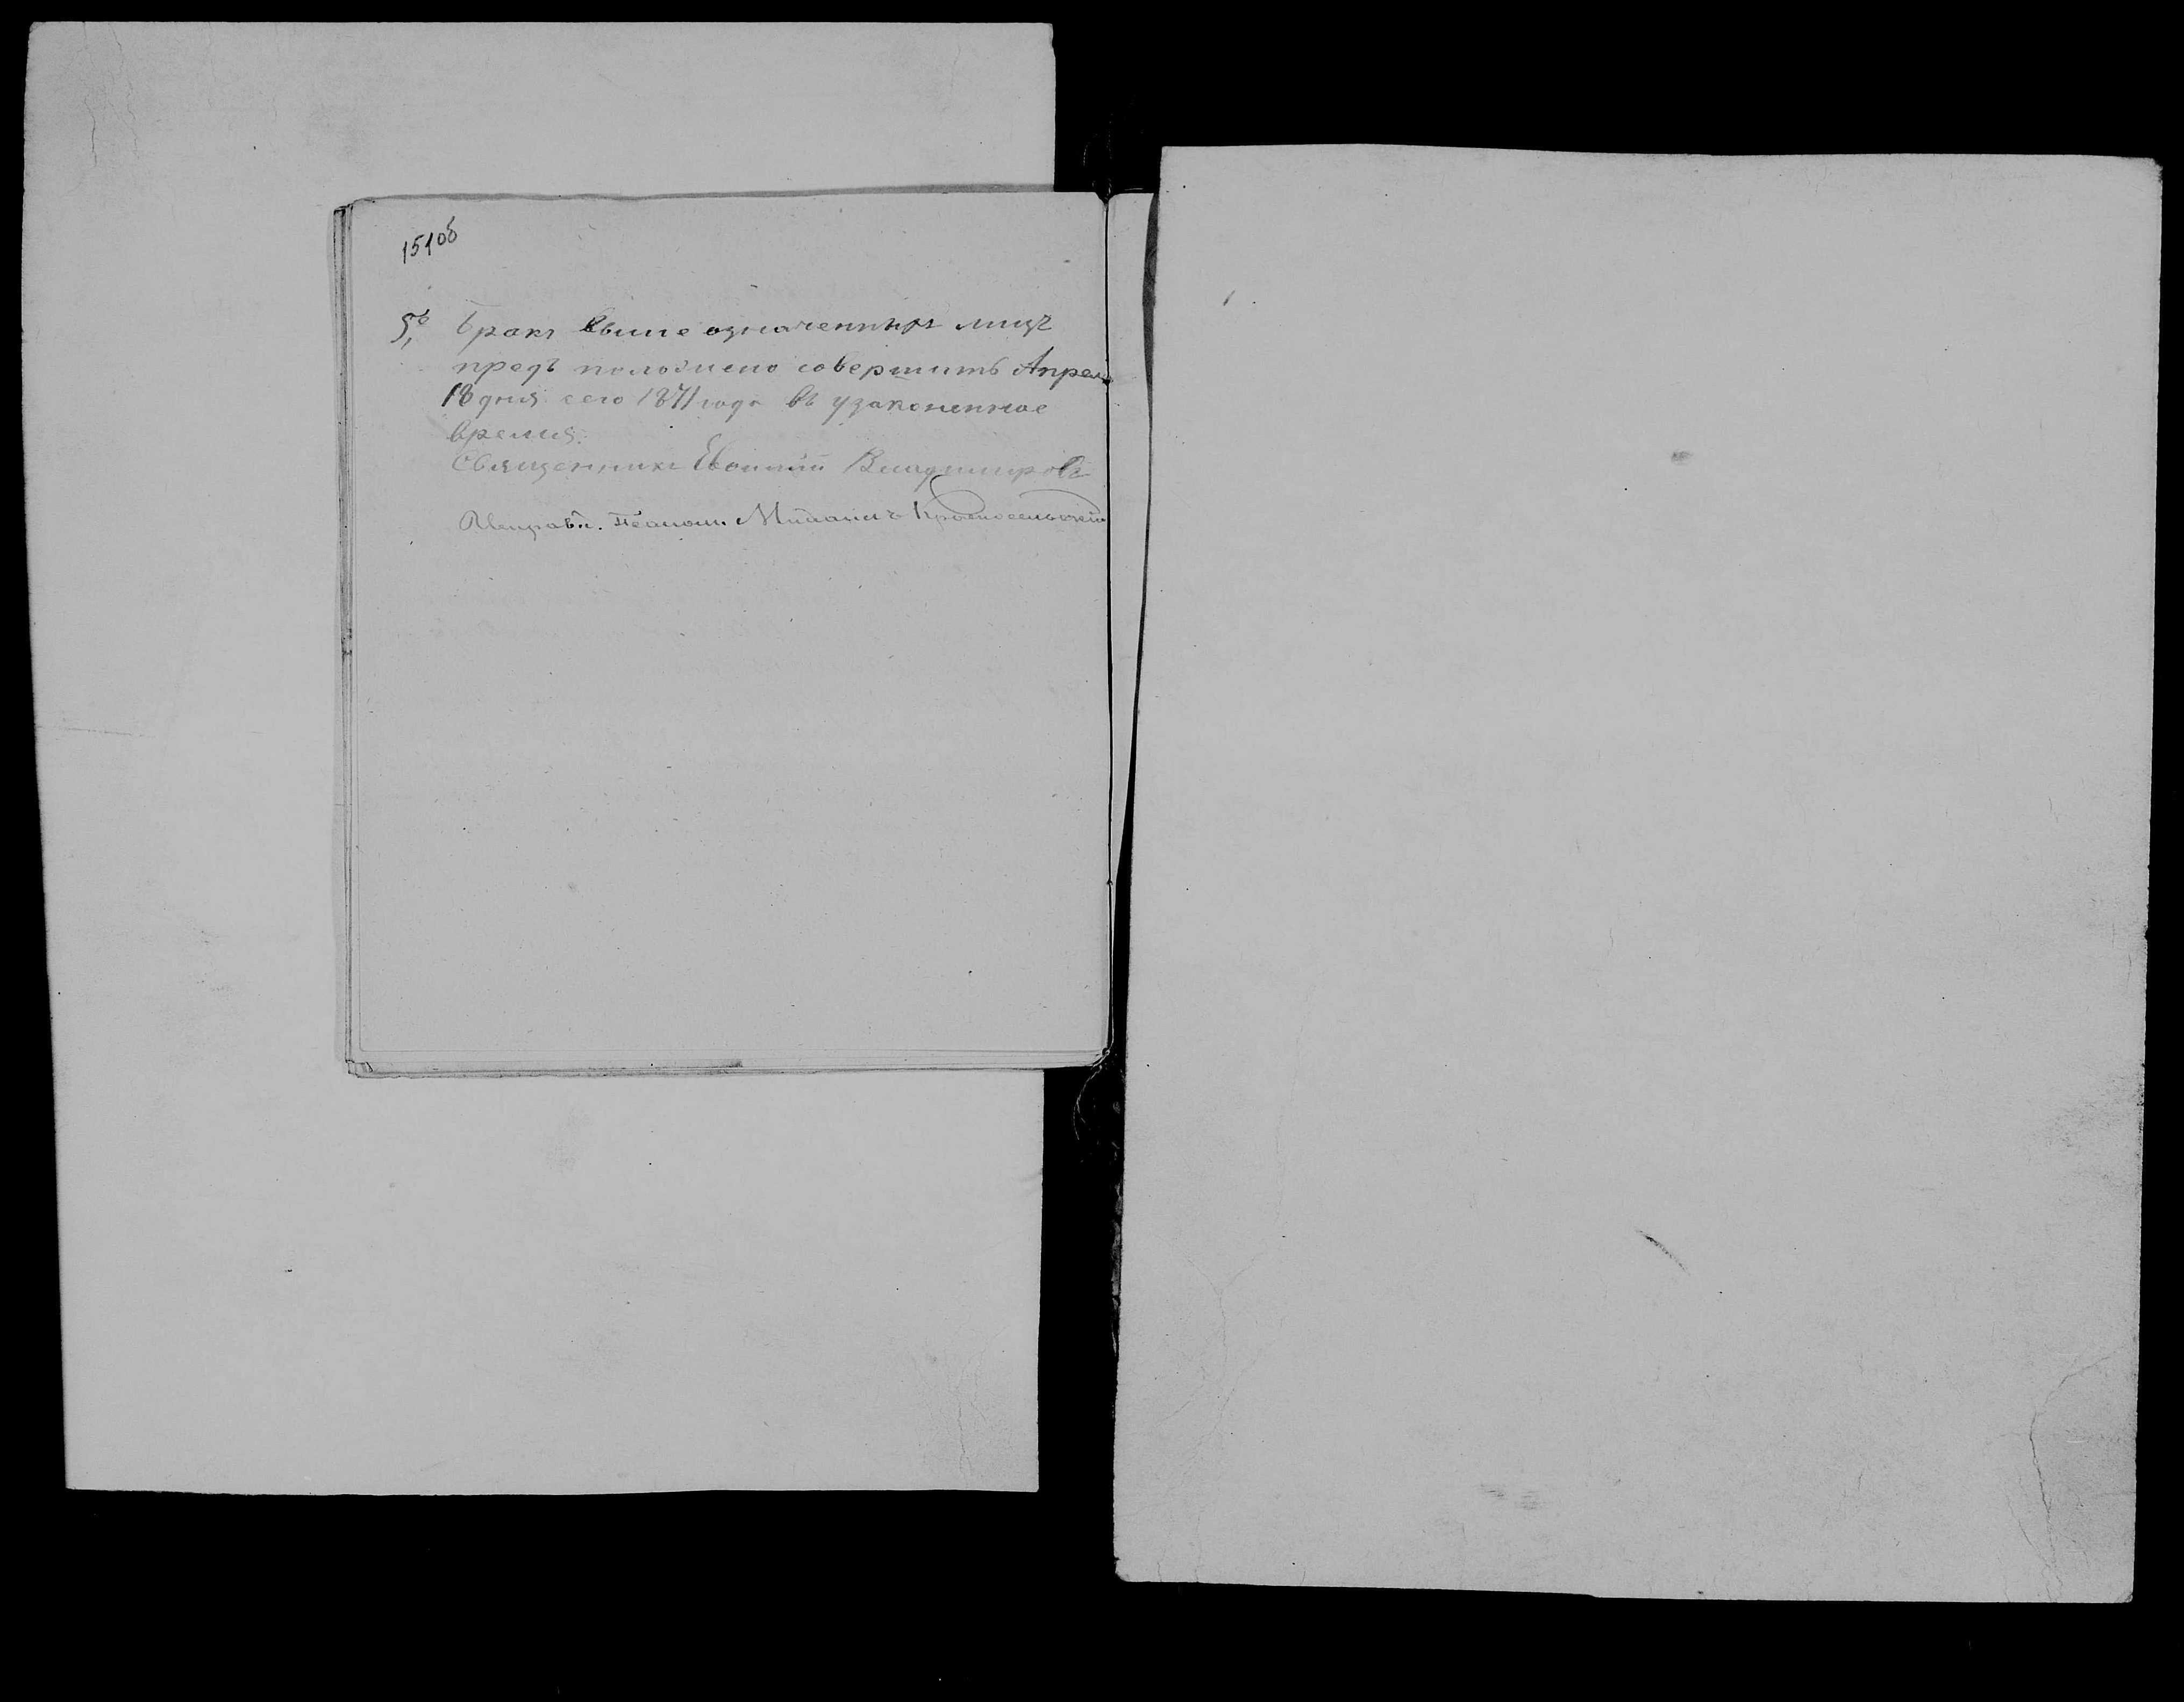 151об
5е Бракъ выше означенныхъ лицъ
предъ положено совершить Апреля
18 дня сего 1871 года въ узаконенное
время.
Священникъ Владимировъ
Исправл. Псалом. Михаилъ Красносельскій